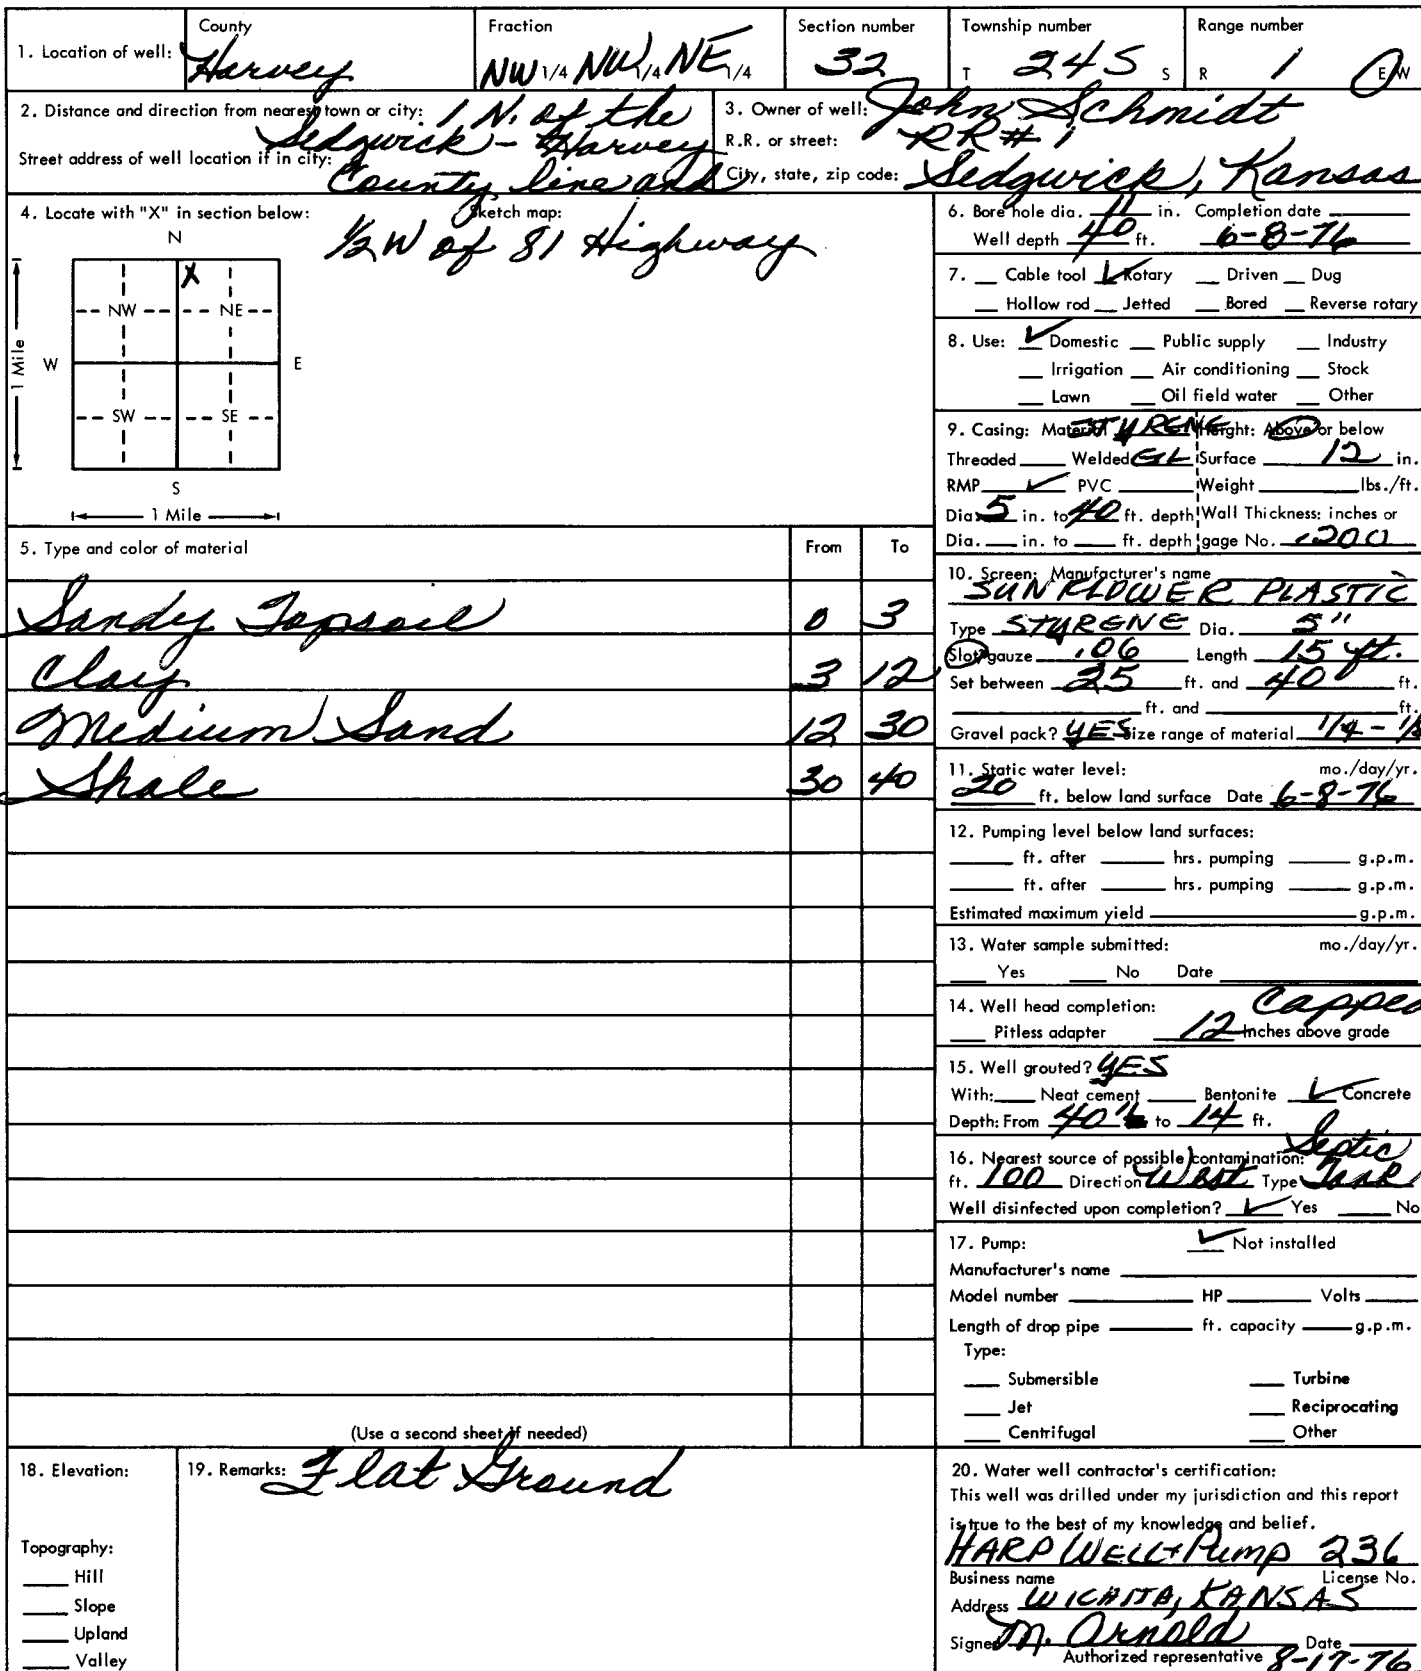 1. Location of well: County Harvey Fraction NW 1/4 NW 1/4 NE 1/4 Section number 32 Township number T 24S S Range number R 1 E/W
2. Distance and direction from nearest town or city: 1 N. of the
Sedgwick - Harvey
Street address of well location if in city: County line and
3. Owner of well: John Schmidt
R.R. or street: RR # 1
City, state, zip code: Sedgwick, Kansas
4. Locate with "X" in section below: Sketch map:
1/2 W of 81 Highway
N
X
NW NE
W E
SW SE
S
1 Mile
1 Mile
5. Type and color of material From To
Sandy Topsoil 0 3
Clay 3 12
Medium Sand 12 30
Shale 30 40
(Use a second sheet if needed)
6. Bore hole dia. 11 in. Completion date
Well depth 40 ft. 6-8-76
7. Cable tool ✓ Rotary Driven Dug
Hollow rod Jetted Bored Reverse rotary
8. Use: ✓ Domestic Public supply Industry
Irrigation Air conditioning Stock
Lawn Oil field water Other
9. Casing: Material STYRENE Height: Above or below
Threaded Welded GL Surface 12 in.
RMP ✓ PVC Weight lbs./ft.
Dia. 5 in. to 40 ft. depth Wall Thickness: inches or
Dia. in. to ft. depth gage No. .200
10. Screen: Manufacturer's name
SUNFLOWER PLASTIC
Type STYRENE Dia. 5"
Slot/gauze .06 Length 15 ft.
Set between 25 ft. and 40 ft.
ft. and ft.
Gravel pack? YES Size range of material 1/4 - 1/8
11. Static water level: mo./day/yr.
20 ft. below land surface Date 6-8-76
12. Pumping level below land surfaces:
ft. after hrs. pumping g.p.m.
ft. after hrs. pumping g.p.m.
Estimated maximum yield g.p.m.
13. Water sample submitted: mo./day/yr.
Yes No Date
14. Well head completion: Capped
Pitless adapter 12 Inches above grade
15. Well grouted? YES
With: Neat cement Bentonite ✓ Concrete
Depth: From 40" to 14 ft.
16. Nearest source of possible contamination: Septic
ft. 100 Direction West Type Tank
Well disinfected upon completion? ✓ Yes No
17. Pump: ✓ Not installed
Manufacturer's name
Model number HP Volts
Length of drop pipe ft. capacity g.p.m.
Type:
Submersible Turbine
Jet Reciprocating
Centrifugal Other
18. Elevation:
Topography:
Hill
Slope
Upland
Valley
19. Remarks: Flat Ground
20. Water well contractor's certification:
This well was drilled under my jurisdiction and this report
is true to the best of my knowledge and belief.
HARP WELL + Pump 236
Business name License No.
Address WICHITA, KANSAS
Signed M. Arnold Date
Authorized representative 8-17-76